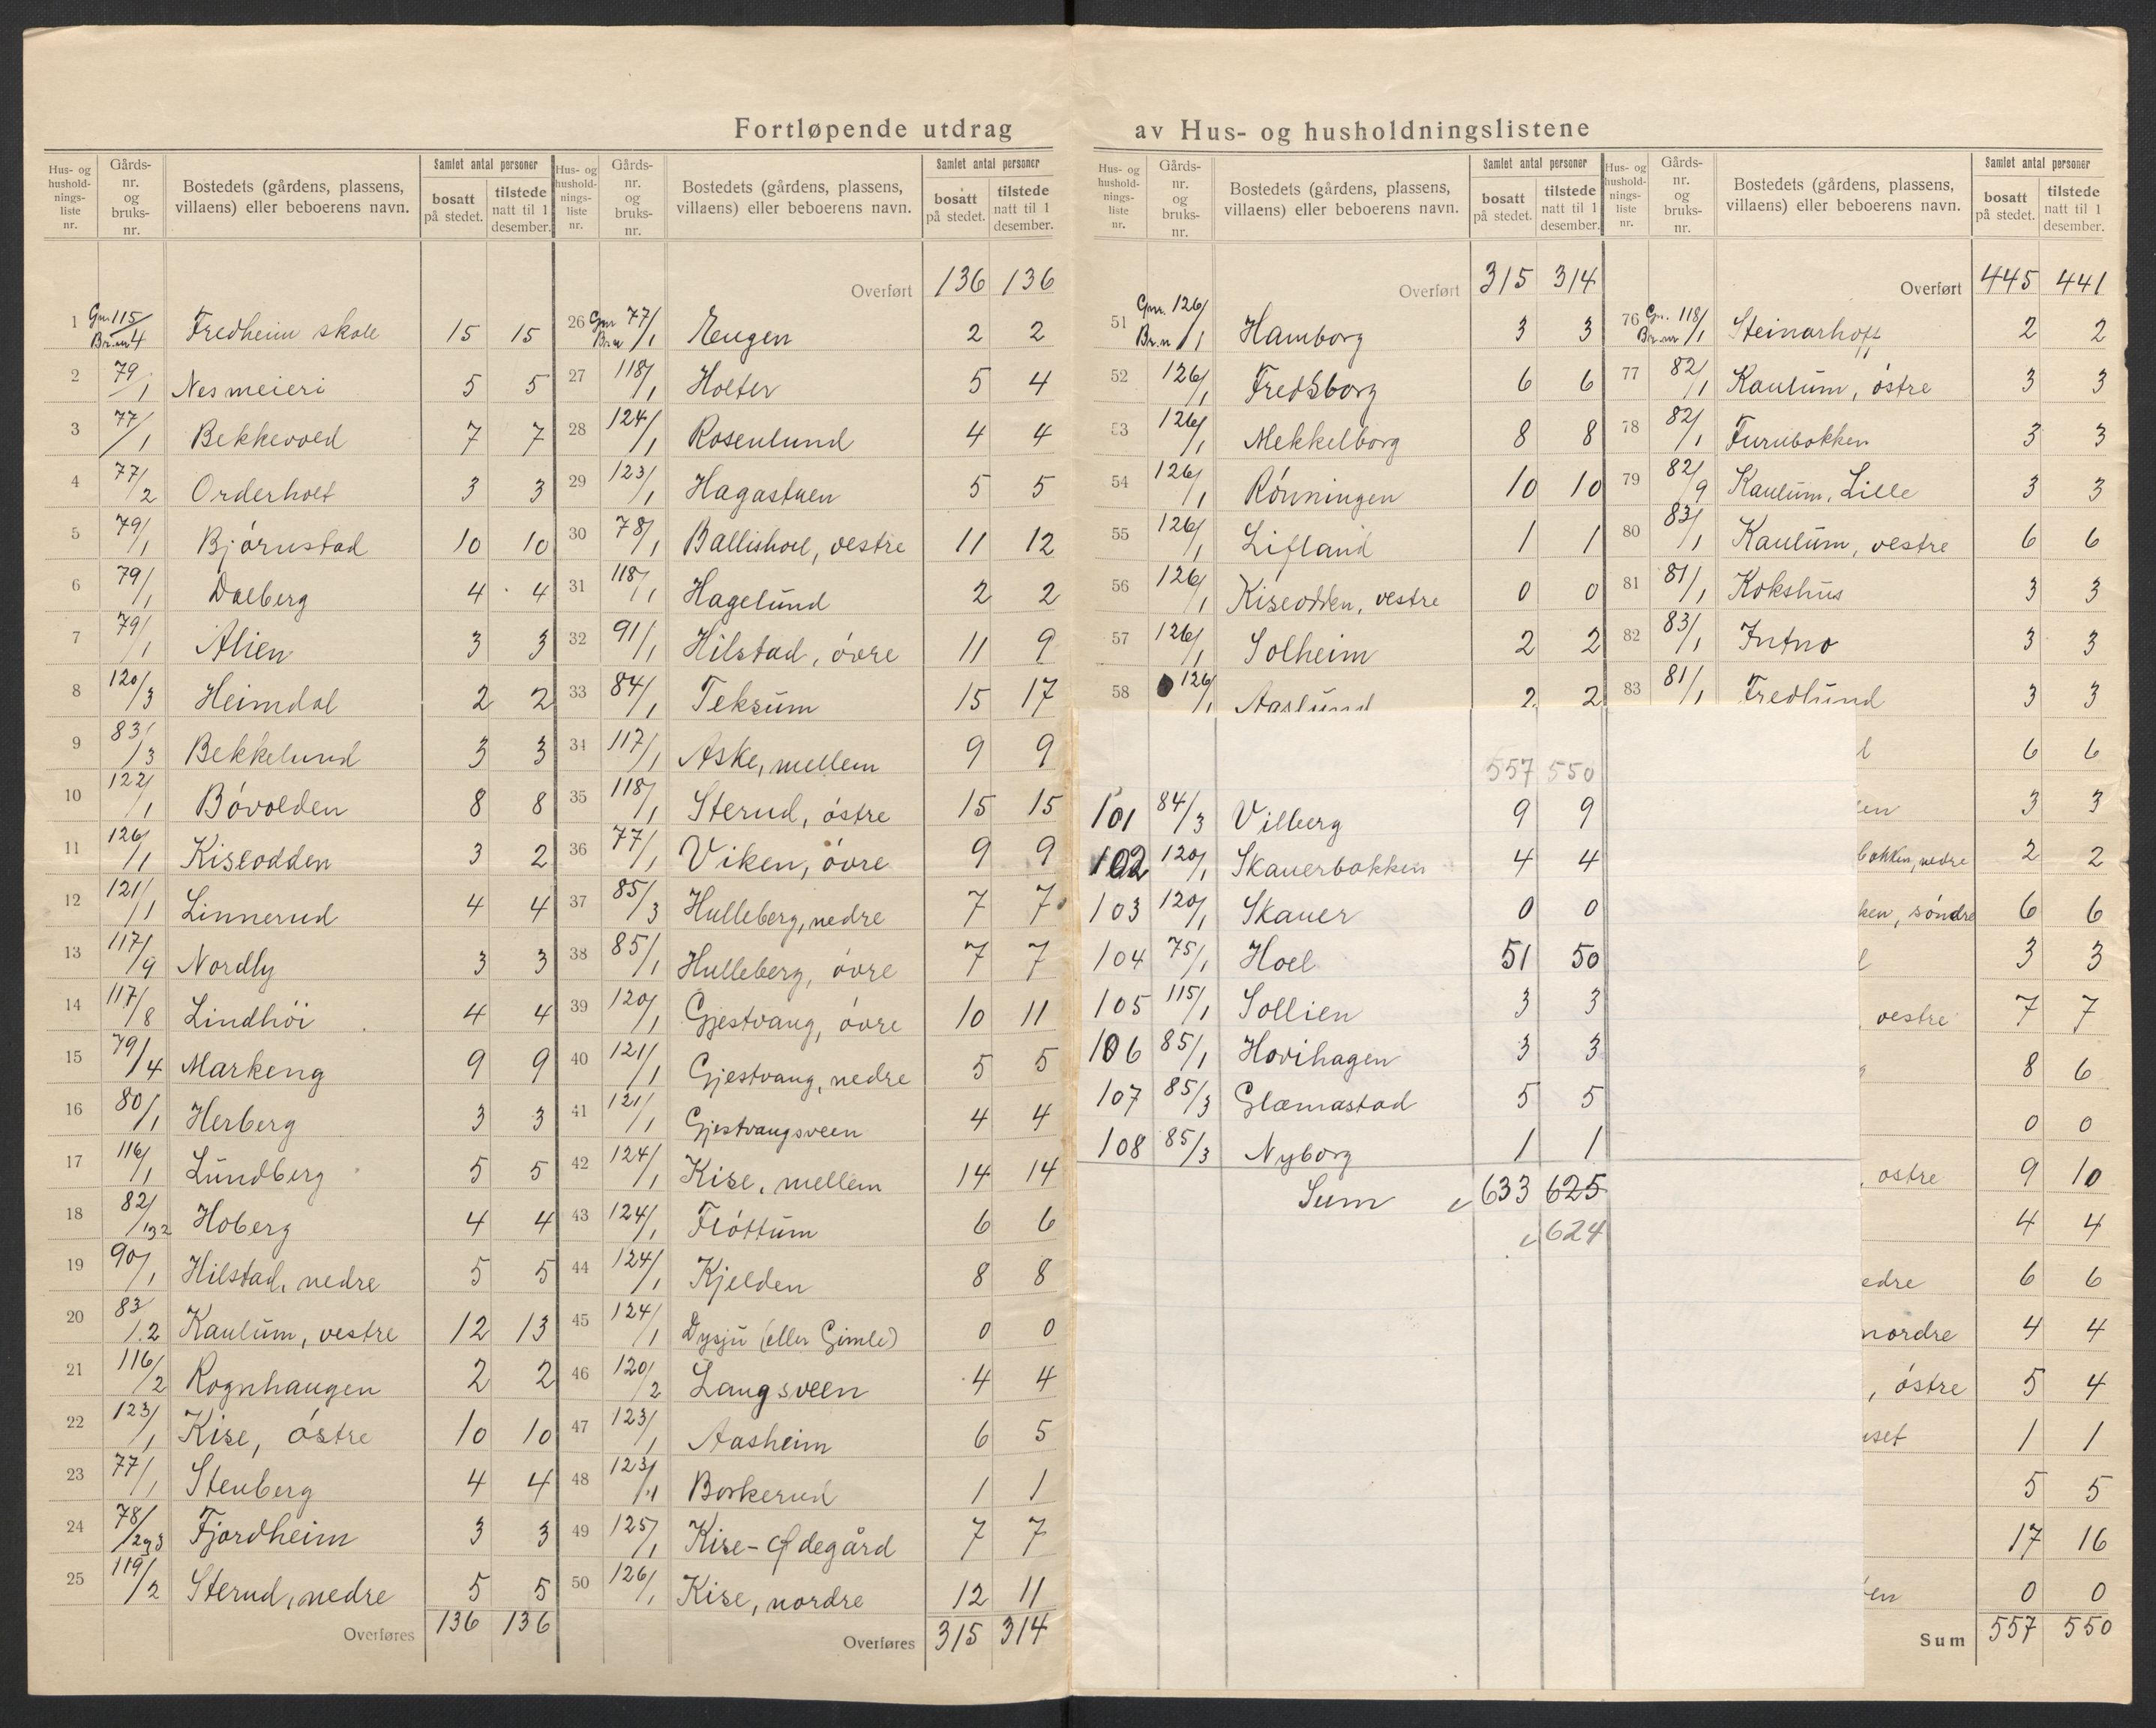 Fortløpende utdrag av Hus- og husholdningslistene
Hus- og hushold-nings-liste nr. Gårds-nr. og bruks-nr. Bostedets (gårdens, plassens, villaens) eller beboerens navn. Samlet antal personer bosatt på stedet. tilstede natt til 1 desember.
1 Gnr. 115/ Br.nr 4 Fredheim skole 15 15
2 79/1 Nes meieri 5 5
3 77/1 Bekkevold 7 7
4 77/2 Orderholt 3 3
5 79/1 Bjørnstad 10 10
6 79/1 Dalberg 4 4
7 79/1 Alien 3 3
8 120/3 Heimdal 2 2
9 83/3 Bekkelund 3 3
10 122/1 Bóvolden 8 8
11 126/1 Kiseodden 3 2
12 121/1 Linnerud 4 4
13 117/9 Nordly 3 3
14 117/8 Lindhöi 4 4
15 79/4 Markeng 9 9
16 80/1 Herberg 3 3
17 116/1 Lundberg 5 5
18 82/132 Hoberg 4 4
19 90/1 Hilstad, nedre 5 5
20 83/1.2 Kaulum, vestre 12 13
21 116/2 Rognhaugen 2 2
22 123/1 Kise, óstre 10 10
23 77/1 Stenberg 4 4
24 78/2og3 Fjordheim 3 3
25 119/2 Sterud, nedre 5 5
Overføres 136 136
Hus- og hushold-nings-liste nr. Gårds-nr. og bruks-nr. Bostedets (gårdens, plassens, villaens) eller beboerens navn. Samlet antal personer bosatt på stedet. tilstede natt til 1 desember.
Overført 136 136
26 Gnr 77/ Br.nr 1 Eugen 2 2
27 118/1 Holter 5 4
28 124/1 Rosenlund 4 4
29 123/1 Hagastuen 5 5
30 78/1 Ballishoel, vestre 11 12
31 118/1 Hagelund 2 2
32 91/1 Hilstad, óvre 11 9
33 84/1 Teksum 15 17
34 117/1 Aske, mellem 9 9
35 118/1 Sterud, óstre 15 15
36 77/1 Viken, óvre 9 9
37 85/3 Hulleberg, nedre 7 7
38 85/1 Hulleberg, óvre 7 7
39 120/1 Gjestvang, óvre 10 11
40 121/1 Gjestvang, nedre 5 5
41 121/1 Gjestvangsveen 4 4
42 124/1 Kise, mellem 14 14
43 124/1 Flóttum 6 6
44 124/1 Kjelden 8 8
45 124/1 Dysju (eller Gimle) 0 0
46 120/2 Langsveen 4 4
47 123/1 Aasheim 6 5
48 123/1 Borkerud 1 1
49 125/1 Kise-Ødegård 7 7
50 126/1 Kise, nordre 12 11
Overføres 315 314
Hus- og hushold-nings-liste nr. Gårds-nr. og bruks-nr. Bostedets (gårdens, plassens, villaens) eller beboerens navn. Samlet antal personer bosatt på stedet. tilstede natt til 1 desember.
Overført 315 314
51 Gnr. 126/ Br.nr 1 Hamborg 3 3
52 126/1 Fredsborg 6 6
53 126/1 Mekkelborg 8 8
54 126/1 Rónningen 10 10
55 126/1 Lifland 1 1
56 126/1 Kiseodden, vestre 0 0
57 126/1 Solheim 2 2
58 126/1 Aaslund 2 2
557 550
101 84/3 Vilberg 9 9
102 120/1 Skauerbakken 4 4
103 120/1 Skauer 0 0
104 75/1 Hoel 51 50
105 115/1 Sollien 3 3
106 85/1 Hovihagen 3 3
107 85/3 Glæmastad 5 5
108 85/3 Nyborg 1 1
Sum 633 625
624
Hus- og hushold-nings-liste nr. Gårds-nr. og bruks-nr. Bostedets (gårdens, plassens, villaens) eller beboerens navn. Samlet antal personer bosatt på stedet. tilstede natt til 1 desember.
Overført 445 441
76 Gn. 118/ Br.nr 1 Steinarhoff 2 2
77 82/1 Kaulum, óstre 3 3
78 82/1 Furubakken 3 3
79 82/9 Kaulum, Lille 3 3
80 83/1 Kaulum, vestre 6 6
81 81/1 Kokshus 3 3
82 83/1 Intno 3 3
83 81/1 Fredlund 3 3
l 6 6
en 3 3
bakken, nedre 2 2
ken, sóndre 6 6
l 3 3
, vestre 7 7
8 6
0 0
, ostre 9 10
4 4
edre 6 6
nordre 4 4
, óstre 5 4
uset 1 1
5 5
17 16
en 0 0
Sum 557 550